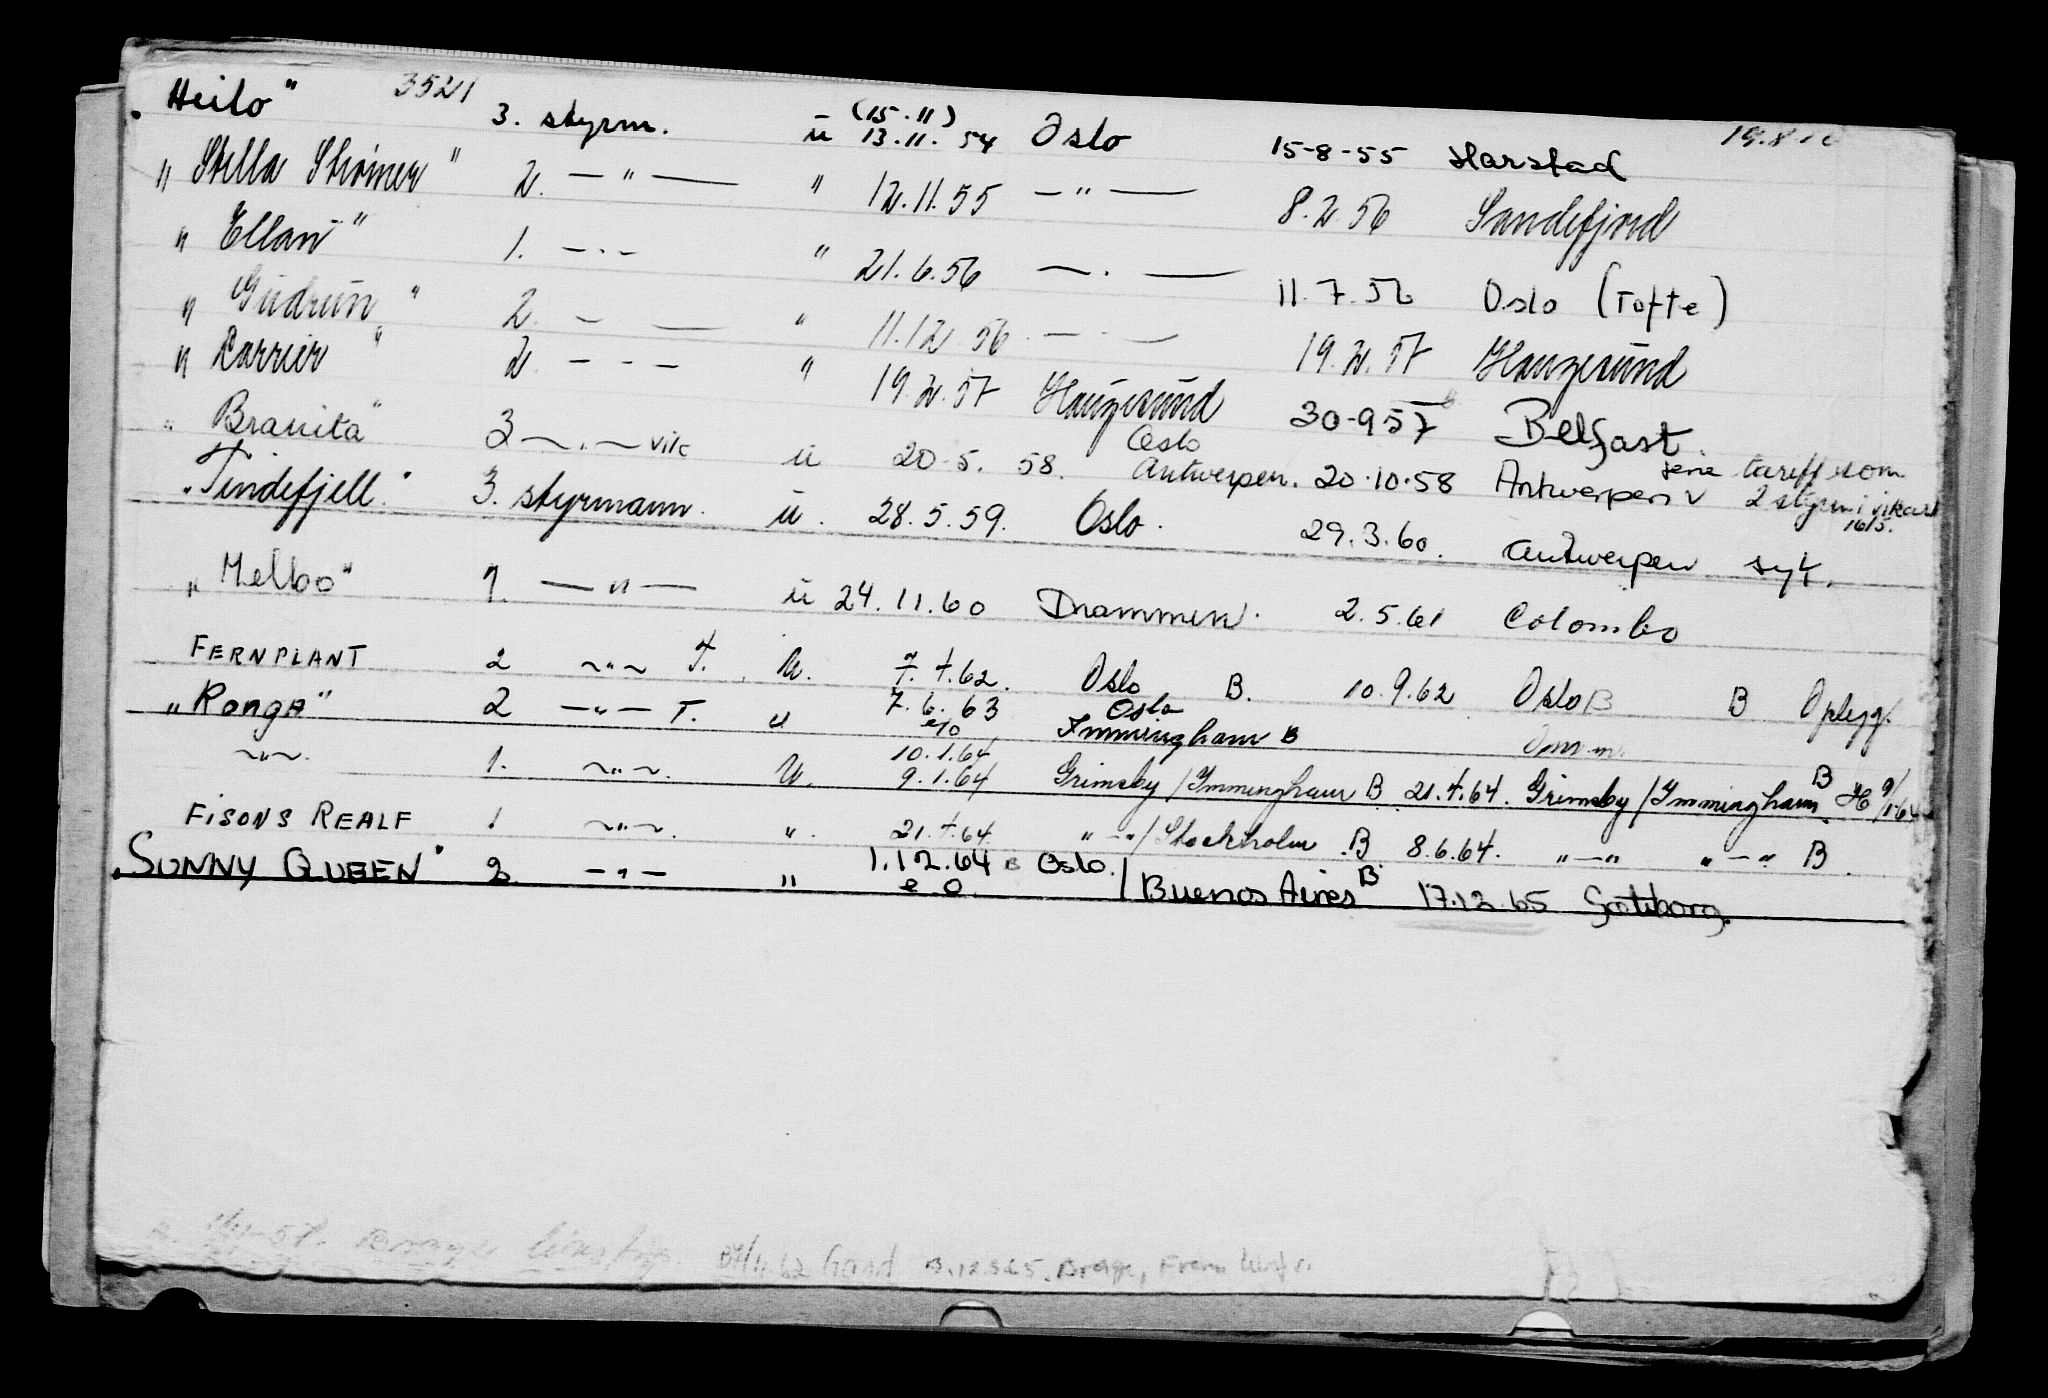 „Heilo" 3521 3. styrm. ü (15.11) 13.11.54 Oslo 15-8-55 Harstad 19.8.10
„Stella 2. — " — " 12.11.55 — " — 8.2.56 Sandefjord
„Ellan" 1. — " — " 21.6.56 — " — 11.7.56 Oslo (Tofte)
„Gudrun" 2. — — " 11.12.56 — " — 19.2.57 Haugesund
„Carrier" 2. — - — " 19.2.57 Haugesund 30-9-57 Belfast.
„Branita" 2 — " — vik ü 20.5.58. Oslo Antwerpen. 20.10.58 Antwerpen tariff som 2 styrm i vikar 16/5.
„Tindefjell" 3. styrmann. ü. 28.5.59. Oslo. 29.3.60. Antwerpen syk.
„Melbo" 1. — " — ü 24.11.60 Drammen. 2.5.61 Colombo
FERNPLANT 2 — " — T. ü. 7.7.62. Oslo B. 10.9.62 Oslo B B Oplegg.
„Ronga" 2 — " — T. ü 7.6.63 e/o Oslo Immingham B
— " — 1. — " — ü. 10.1.64 9.1.64 Grimsby/Immingham B 21.4.64. Grimsby/Immingham B 9/1-64
FISONS REALF 1 — " — ". 21.4.64 " — "/Stockholm B. 8.6.64. " — " " — " B.
„SUNNY QUEEN" 2. — " — " 1.12.64 e.o. B Oslo./Buenos Aires B. 17.12.65 Göteborg.
B.12.3.65. Brage,